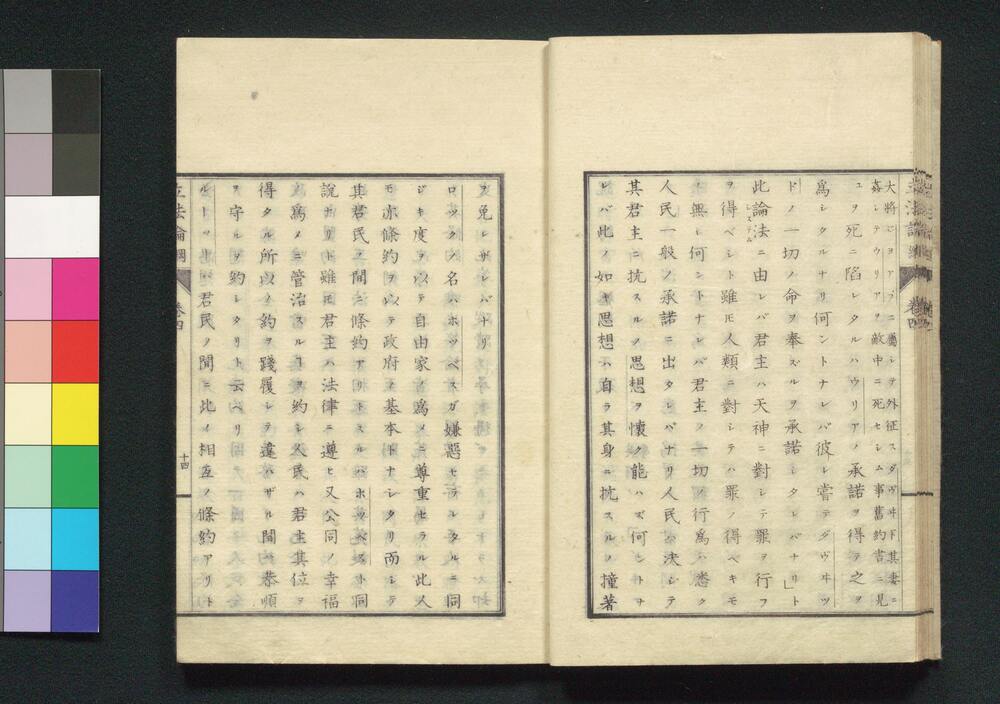 大將ジヨアブニ屬シテ外征スダヴヰド其妻ニ
姦シテウリアヲ敵中ニ死セシム事舊約書ニ見
ユヲ死ニ陷レタルハウリアノ承諾ヲ得テ之ヲ
爲シタルナリ何ントナレバ彼レ嘗テダヴヰツ
ドノ一切ノ命ヲ奉ズルヲ承諾シタレバナリ」ト
此論法ニ由レバ君主ハ天神ニ對シテ罪ヲ行フ
システム
ヲ得ベシト雖モ人類ニ對シテハ罪ノ得ベキモ
無シ何ントナレバ君主ノ一切ノ行爲ハ悉ク
人民一般ノ承諾ニ出タレバナリ人民ハ決シテ
其君主ニ抗スルノ思想ヲ懷ク能ハズ何ントナ
レバ此ノ如キ思想ハ自ラ其身ニ抗スルノ撞著
立法論綱
卷四
ヲ免レザレバナリ
ロックノ名ハホッベスガ嫌惡セラレタルニ同
ジキ度ヲ以テ自由家ノ爲メニ尊重セラル此人
モ亦條約ヲ以テ政府ノ基本トナシタリ而シテ
其君民ノ間ニ條約アリトスルハホッベスト同
説ナリト雖モ君主ハ法律ニ遵ヒ又公同ノ幸福
ノ爲メニ管治スルヿヲ約シ人民ハ君主其位ヲ
得タル所以ノ約ヲ踐履シテ違ハザル間ハ恭順
ヲ守ルヲ約シタリト云ヘリ
君民ノ間ニ此ノ相互ノ條約アリト
立法論綱
卷四
十四